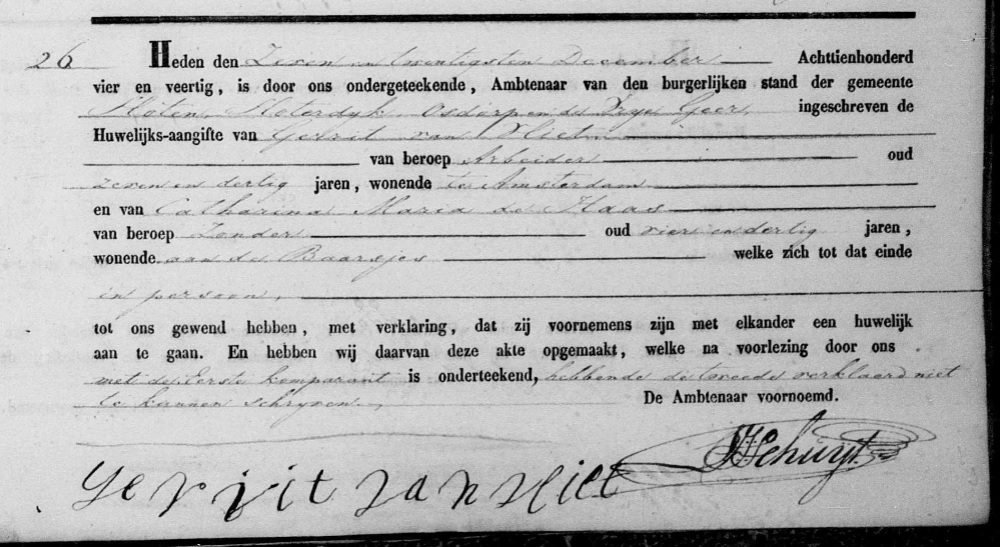 26 Heden den Zeven en twintigsten December Achttienhonderd
vier en veertig, is door ons ondergeteekende, Ambtenaar van den burgerlijken stand der gemeente
Sloten, Sloterdyk, Osdorp en de Vrye Geer, ingeschreven de
Huwelijks-aangifte van Gerrit van Vliet
van beroep Arbeider oud
zeven en dertig jaren, wonende te Amsterdam
en van Catharina Maria de Haas
van beroep Zonder oud vier en dertig jaren,
wonende aan de Baarsjes welke zich tot dat einde
in persoon,
tot ons gewend hebben, met verklaring, dat zij voornemens zijn met elkander een huwelijk
aan te gaan. En hebben wij daarvan deze akte opgemaakt, welke na voorlezing door ons
met de Eerste komparant is onderteekend, hebbende de tweede verklaard niet
te kunnen schryven,
De Ambtenaar voornoemd.
Gerrit van Vliet
Schuyt